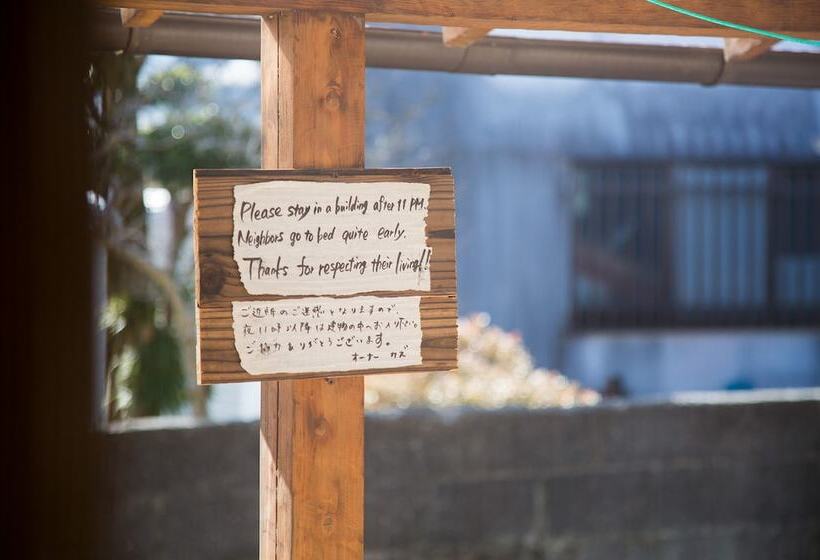 Please stay in a building after 11 PM.
Neighbors go to bed quite early.
Thanks for respecting their living!!
ご近所のご迷惑となりますので
夜11時以降は建物の中へお入り下さい。
ご協力ありがとうございます。
オーナー カズ